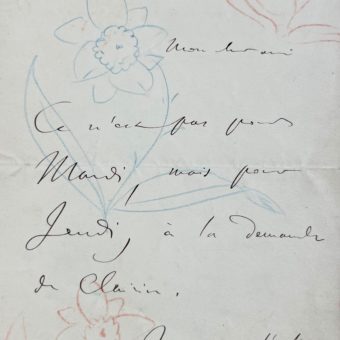 Mon cher ami
Ce n'est pas pour
Mardi, mais pour
Jeudi, à la demande
de Clairin.